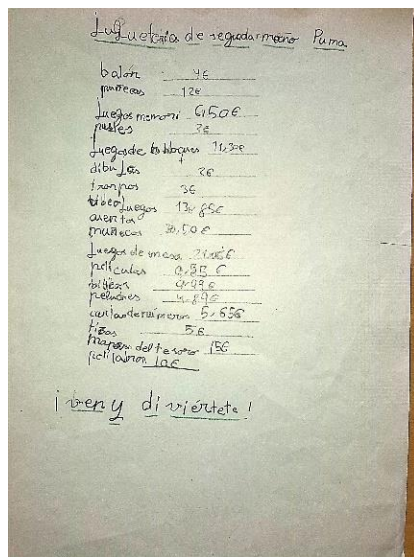 Juguetería de segudarmano Puma
balón 4€
muñecas 12€
Juegos memori 6,50€
pusles 3€
Juegos de bloques 11,30€
dibujos 2€
tronpos 3€
videoJuegos 13,85€
muñecos 30,50€
Juegos de mesa
películas 9,95€
9,99€
peluches 4,89€
5,65€
tizas 5€
mapas del tesoro 15€
10€
¡ven y diviértete!